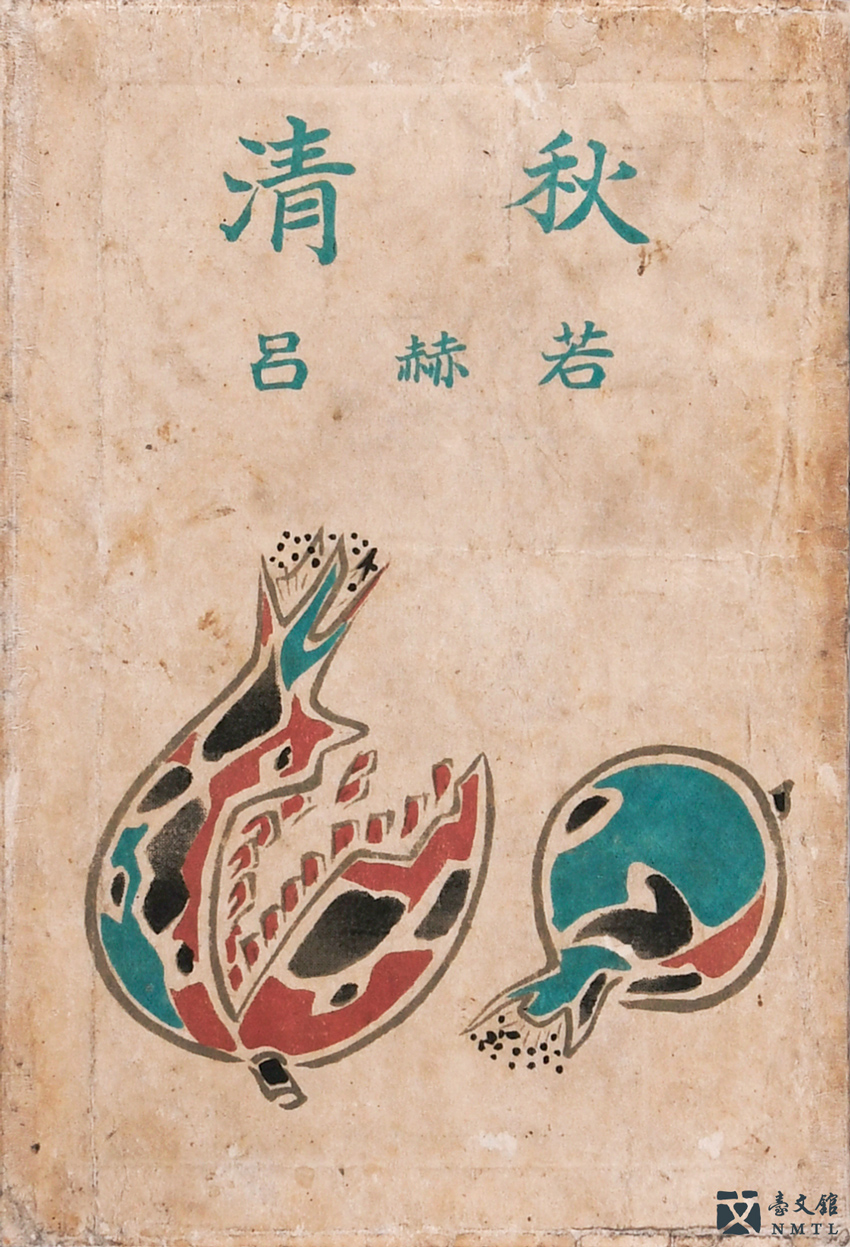 清秋
呂赫若
臺文館
NMTL